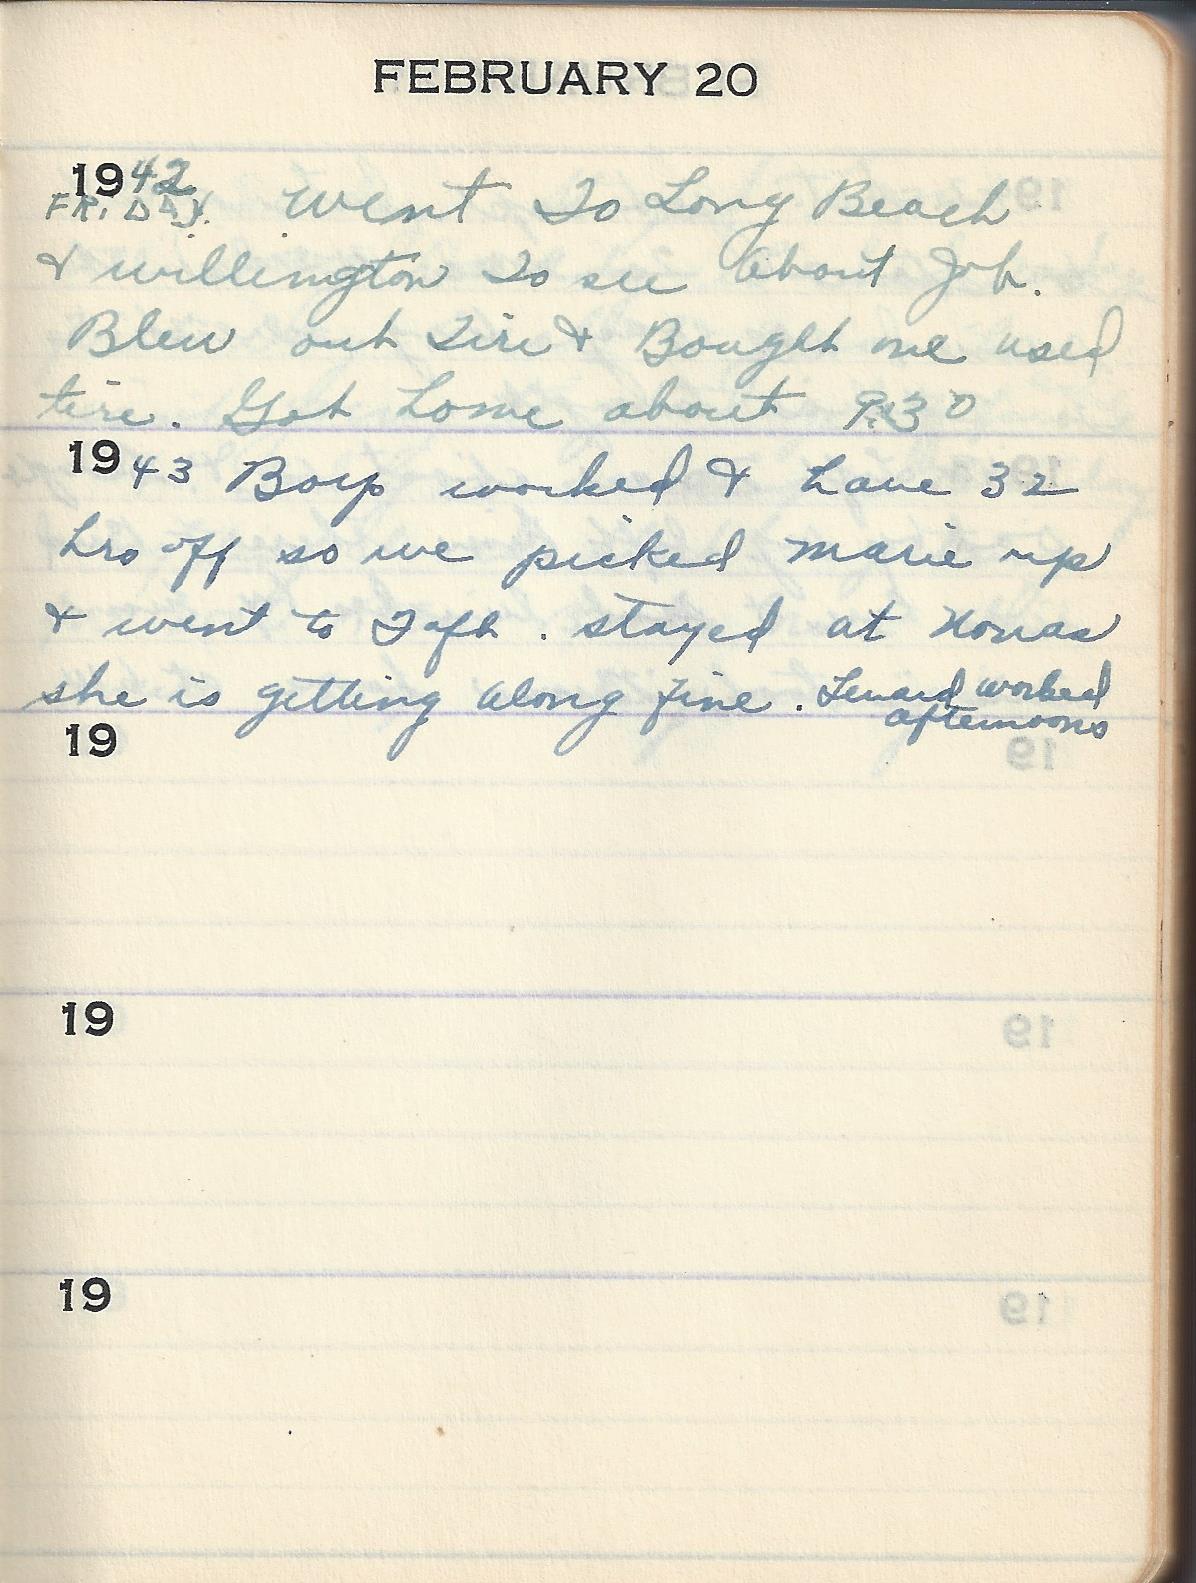 FEBRUARY 20
1942 Went To Long Beach
FRIDAY.
& willington To see about Job.
Blew out Tire & Bought one used
tire. Got home about 9:30
1943 Boys worked & have 32
hrs off so we picked Marie up
& went to Taft. stayed at Nonas
she is getting along fine. Lenard worked
afternoons
19
19
19